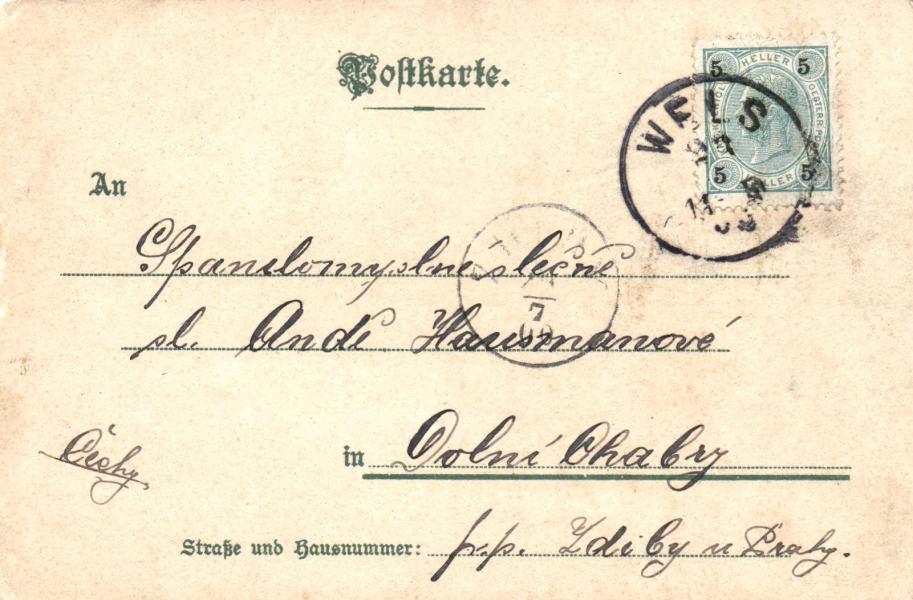 Postkarte.
5 HELLER 5
5 HELLER 5
WELS
An
7
Spanilomyslné slečně
sl. Andě Hausmanové
Čechy
in Dolní Chabry
Straße und Hausnummer: p.p. Zdiby u Prahy.